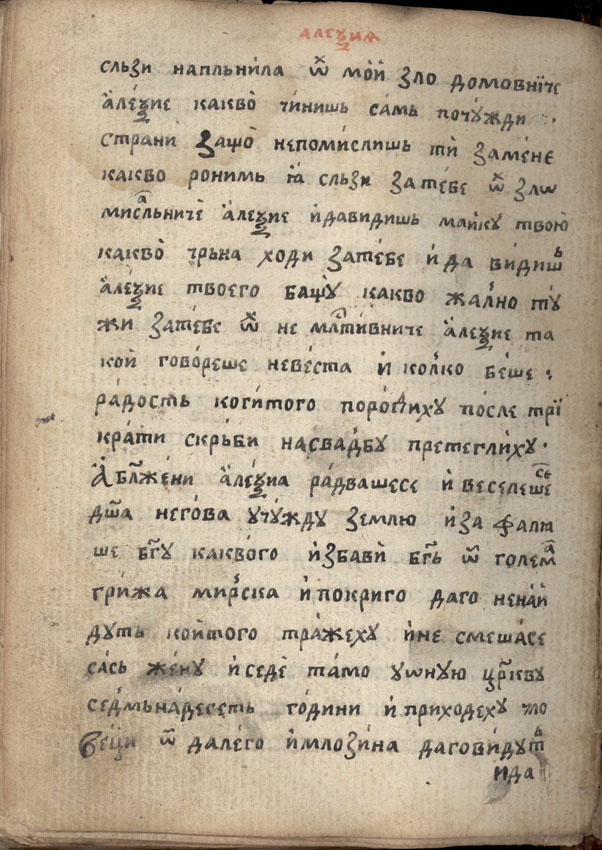 алеѯиа
сльзи напльнила ѿ мой зло домовнїче
а҆леѯие какво̀ чинишь самь по чꙋжди ·
страни̏ защо̀ непомислишь тѝ замене
какво ронимь ꙗ сльзи затебе ѿ зло
мисⷧ҇льниче а҆леѯие и҆давидишь майкꙋ твою
какво̀ чрьна ходи затебе и҆ да видишъ
а҆леѯие твоего бащꙋ какво жално тꙋ
жи затебе ѿ не млⷭ҇тивниче а҆леѯие та
кой говореше невеста и҆ колко беше ·
радость когитого породихꙋ после трї
крати скрьби насвадбꙋ претеглихꙋ ·
А҆ блⷤ҇жени а҆леѯиа радвашесе и҆ веселешесе
дш҃а негова ꙋчꙋждꙋ землю и҆за фалю
ше бг҃ꙋ каквого и҆збави бг҃ь ѿ голема
грижа мирска и҆покриго даго ненай
дꙋть който го тражехꙋ и҆не смешасе
сась женꙋ и҆седѐ тамо ꙋѡнꙋю црⷦ҇вꙋ
седмьнадесеть години и҆ приходехꙋ чло
веци ѿ далего и҆млозина даговидꙋть
ида